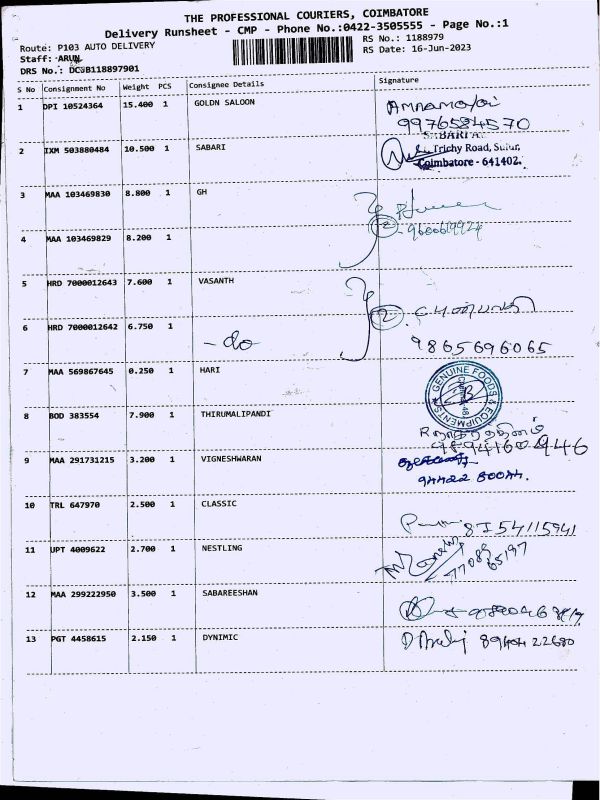 THE PROFESSIONAL COURIERS, COIMBATORE
Delivery Runsheet - CMP - Phone No.:0422-3505555 - Page No.:1
Route: P103 AUTO DELIVERY
RS No.: 1188979
Staff: ARUN
RS Date: 16-Jun-2023
DRS No.: DC B118897901
S No Consignment No Weight PCS Consignee Details Signature
1 DPI 10524364 15.400 1 GOLDN SALOON
9976584570
2 IXM 503880484 10.500 1 SABARI
SABARI A
Trichy Road, Sulur,
Coimbatore - 641402.
3 MAA 103469830 8.800 1 GH
4 MAA 103469829 8.200 1
2
5 HRD 7000012643 7.600 1 VASANTH
6 HRD 7000012642 6.750 1
2
- do
9865696065
7 MAA 569867645 0.250 1 HARI
GENUINE FOODS & EQUIPMENTS
8 BOD 383554 7.900 1 THIRUMALIPANDI
9 MAA 291731215 3.200 1 VIGNESHWARAN
94422 80044.
10 TRL 647970 2.500 1 CLASSIC
8754115941
11 UPT 4009622 2.700 1 NESTLING
77089
65197
12 MAA 299222950 3.500 1 SABAREESHAN
13 PGT 4458615 2.150 1 DYNIMIC
8940422680